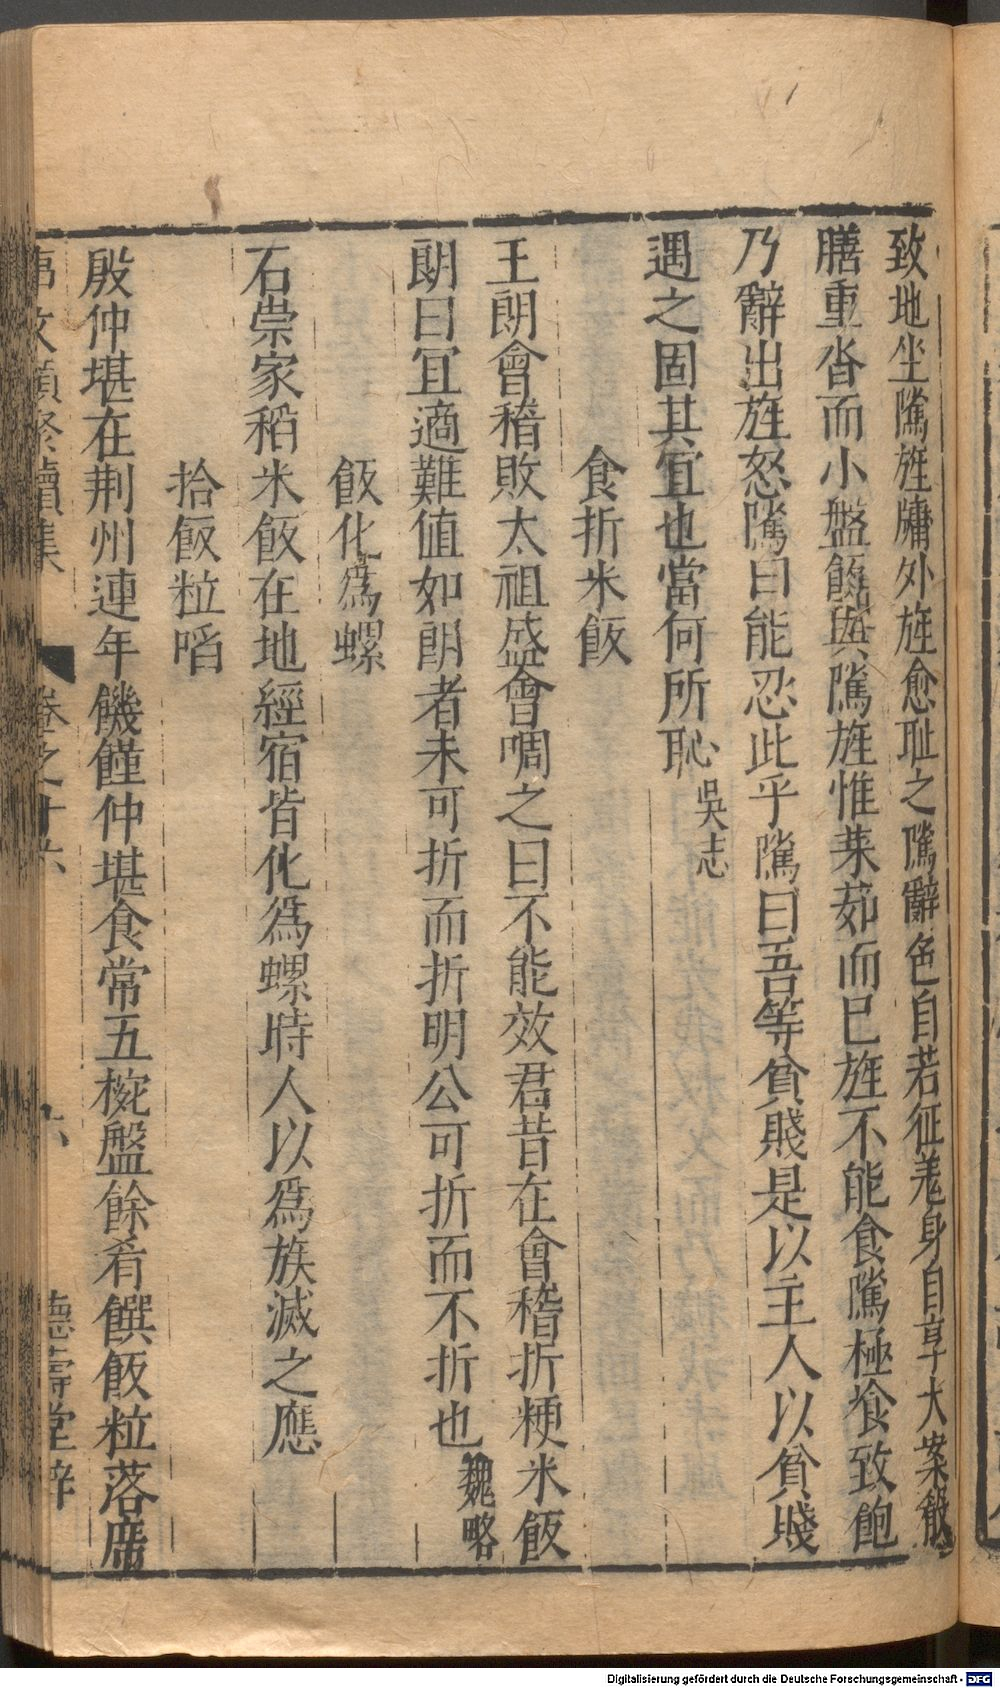 致地坐隲旌牗外旌愈耻之隲辭色自若征羗身自享大案殽
膳重沓而小盤飯與隲旌惟菜茹而已旌不能食隲極飡致飽
乃辭出旌怒隲曰能忍此乎隲曰吾等貧賤是以主人以貧賤
遇之固其宜也當何所恥 吳志
食折米飯
王朗會稽敗太祖盛會啁之曰不能效君昔在會稽折粳米飯
朗曰宜適難值如朗者未可折而折明公可折而不折也 魏略
飯化為螺
石崇家稻米飯在地經宿皆化為螺時人以為族滅之應
拾飯粒啗
殷仲堪在荆州連年饑饉仲堪食常五椀盤餘肴饌飯粒落席
事文類聚續集 卷之十六 六 德壽堂梓
Digitalisierung gefördert durch die Deutsche Forschungsgemeinschaft - DFG